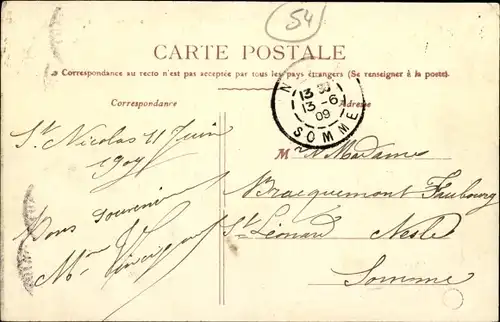 54
CARTE POSTALE
Correspondance au recto n'est pas acceptée par tous les pays étrangers (Se renseigner à la poste).
Correspondance
Adresse
N
13 30
13-6
09
SOMME
St Nicolas 11 Juin
1909
Bons Souvenir
M
M Madame
Bracquemont Faubourg
St Léonard Nesle
Somme